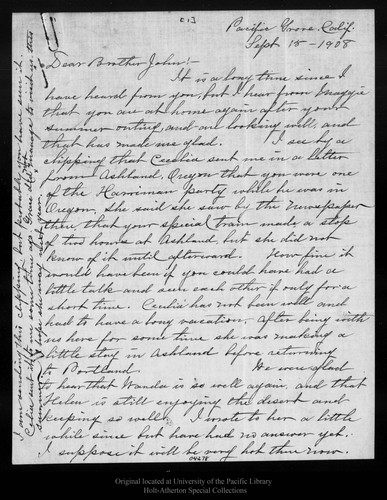 [1]
Pacific Grove. Calif.
Sept 15 - 1908
Dear Brother John:-
It is a long time since I
have heard from you, but I hear from Maggie
that you are at home again after your
summer outing, and are looking well, and
that has made me glad. I see by a
clipping that Cecelia sent me in a letter
from Ashland, Oregon that you were one
of the Harriman party while he was in
Oregon, she said she saw by the newspaper
there, that your special train made a stop
of two hours at Ashland, but she did not
know of it until afterward. How fine it
would have been if you could have had a
little talk and seen each other if only for a
short time. Cecelia has not been well and
had to have a long vacation. After being with
us here for some time she was making a
little stay in Ashland before returning
to Portland. We were glad
to hear that Wanda is so well again, and that
Helen is still enjoying the desert and
keeping so well. I wrote to her a little
while since but have had no answer yet.
I suppose it will be very hot there now.
I am sending this clipping, but probably you have seen it.
04278
Original located at University of the Pacific Library
Holt-Atherton Special Collections